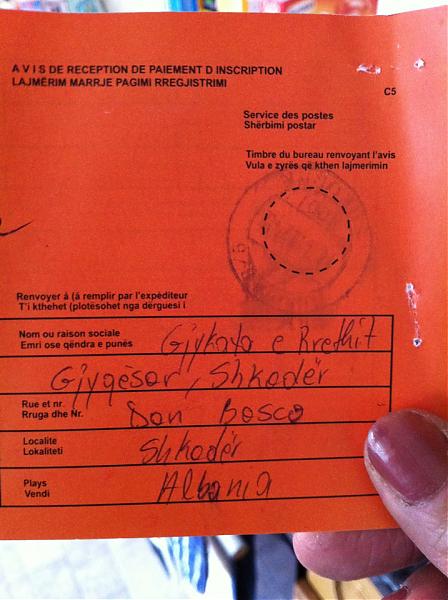 AVIS DE RECEPTION DE PAIEMENT D INSCRIPTION
LAJMËRIM MARRJE PAGIMI RREGJISTRIMI
C5
Service des postes
Shërbimi postar
Timbre du bureau renvoyant l'avis
Vula e zyrës që kthen lajmerimin
Renvoyer á (á remplir par l'expèditeur
T'i kthehet (plotësohet nga dërguesi i
Nom ou raison sociale
Emri ose qëndra e punës
Gjykata e Rrethit
Gjyqësor, Shkodër
Rue et nr.
Rruga dhe Nr.
Don Bosco
Localite
Lokaliteti
Shkodër
Plays
Vendi
Albania